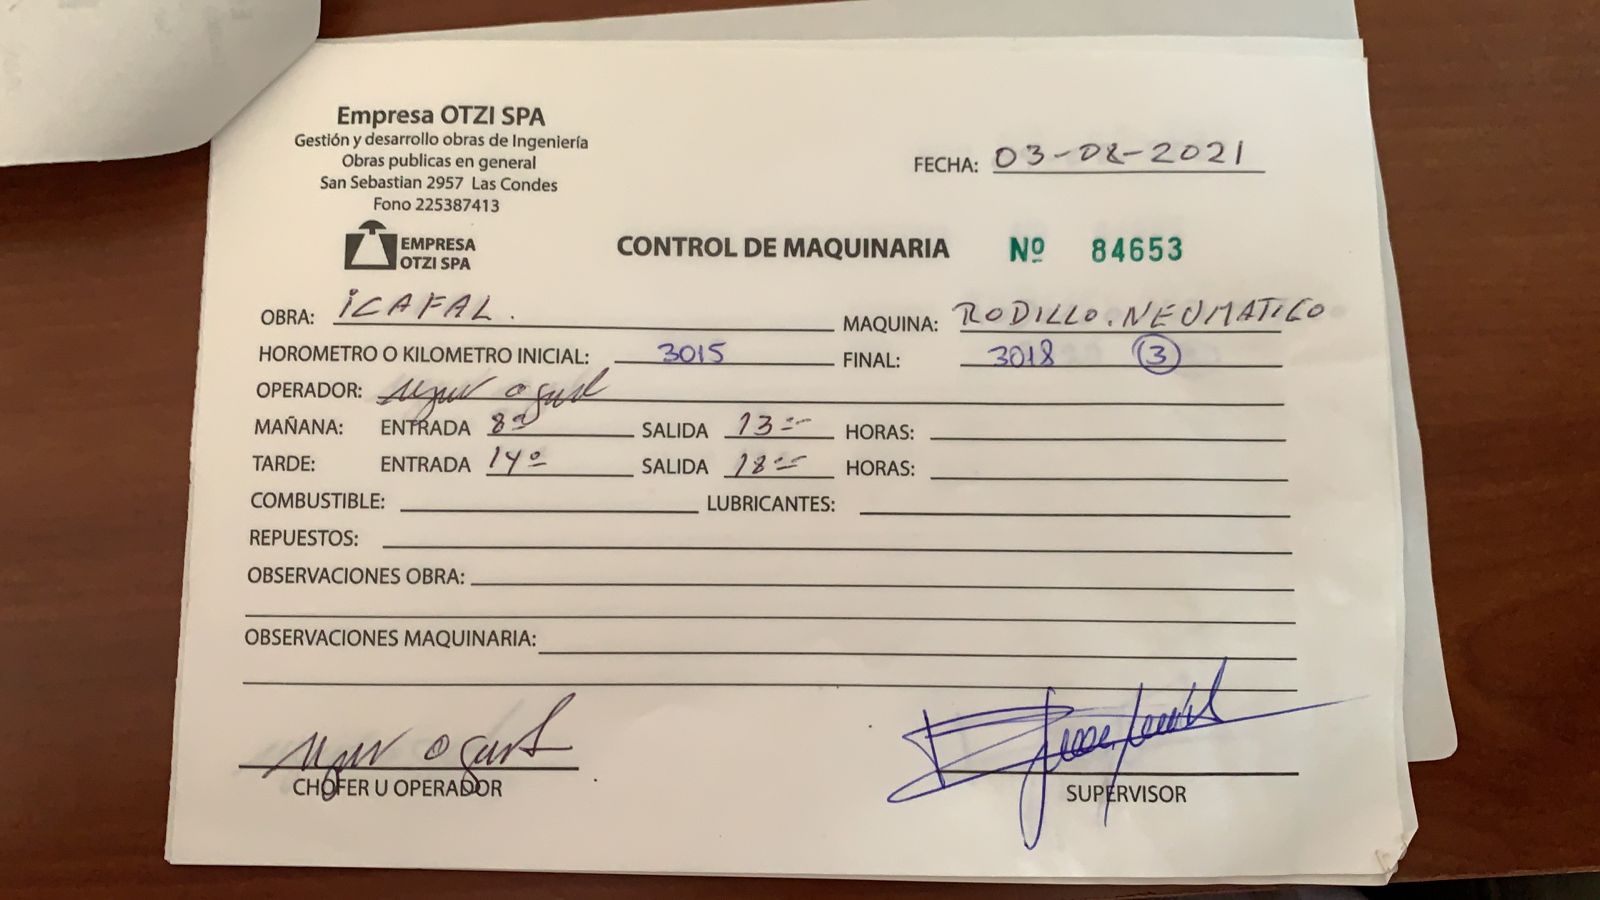 Empresa OTZI SPA
Gestión y desarrollo obras de Ingeniería
Obras publicas en general
San Sebastian 2957 Las Condes
Fono 225387413
EMPRESA
OTZI SPA
FECHA: 03-08-2021
CONTROL DE MAQUINARIA Nº 84653
OBRA: iCAFAL. MAQUINA: RODILLO. NEUMATICO
HOROMETRO O KILOMETRO INICIAL: 3015 FINAL: 3018 3
OPERADOR:
MAÑANA: ENTRADA 8 SALIDA 13 HORAS:
TARDE: ENTRADA 14 SALIDA 18 HORAS:
COMBUSTIBLE: LUBRICANTES:
REPUESTOS:
OBSERVACIONES OBRA:
OBSERVACIONES MAQUINARIA:
CHOFER U OPERADOR
SUPERVISOR